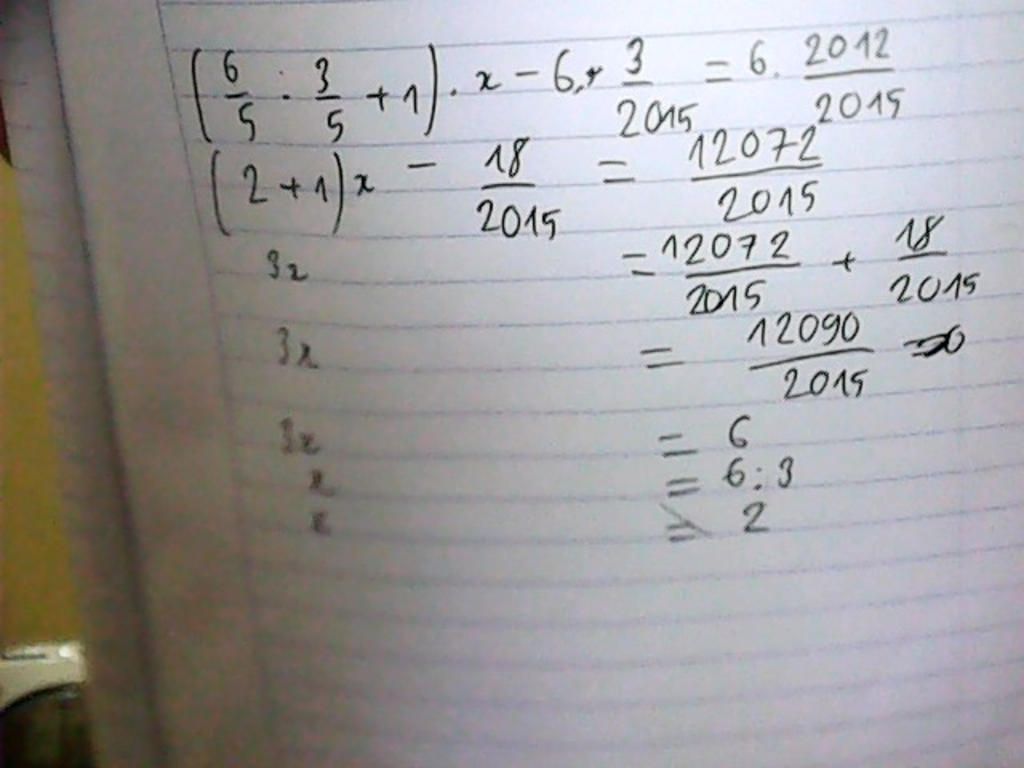 (6/5 : 3/5 + 1) . x - 6. 3/2015 = 6. 2012/2015
(2 + 1)x - 18/2015 = 12072/2015
3x = 12072/2015 + 18/2015
3x = 12090/2015
3x = 6
x = 6 : 3
x = 2